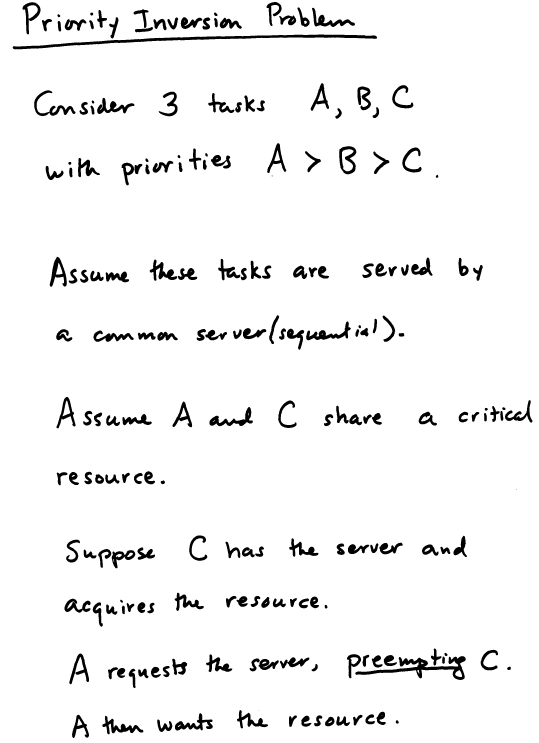 Priority Inversion Problem
Consider 3 tasks A, B, C
with priorities A > B > C.
Assume these tasks are served by
a common server (sequential).
Assume A and C share a critical
resource.
Suppose C has the server and
acquires the resource.
A requests the server, preempting C.
A then wants the resource.